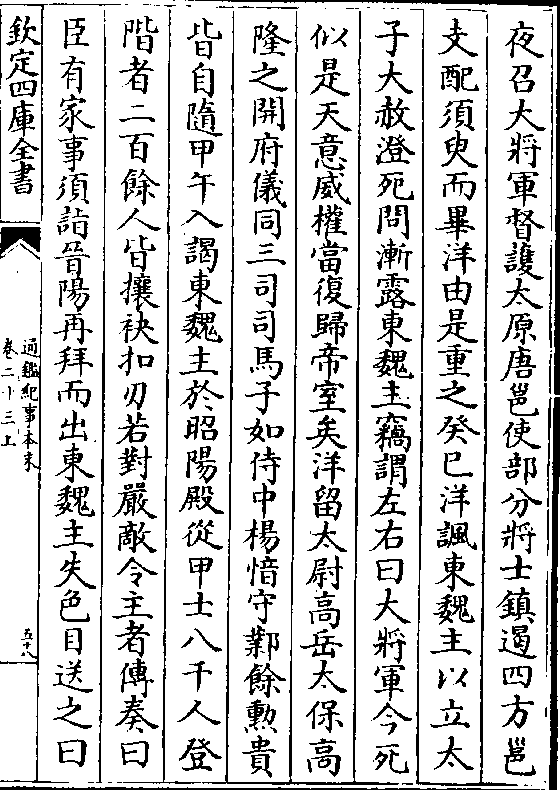 夜召大將軍督護太原唐邕使部分將士鎮遏四方邕
支配須臾而畢洋由是重之癸巳洋諷東魏主以立太
子大赦澄死問漸露東魏主竊謂左右曰大將軍今死
似是天意威權當復歸帝室矣洋留太尉高岳太保高
隆之開府儀同三司司馬子如侍中楊愔守鄴餘勲貴
皆自隨甲午入謁東魏主於昭陽殿從甲士八千人登
階者二百餘人皆攘袂扣刃若對嚴敵令主者傳奏曰
臣有家事須詣晉陽再拜而出東魏主失色目送之曰
欽定四庫全書
通鑑紀事本末
卷二十三上
五十八